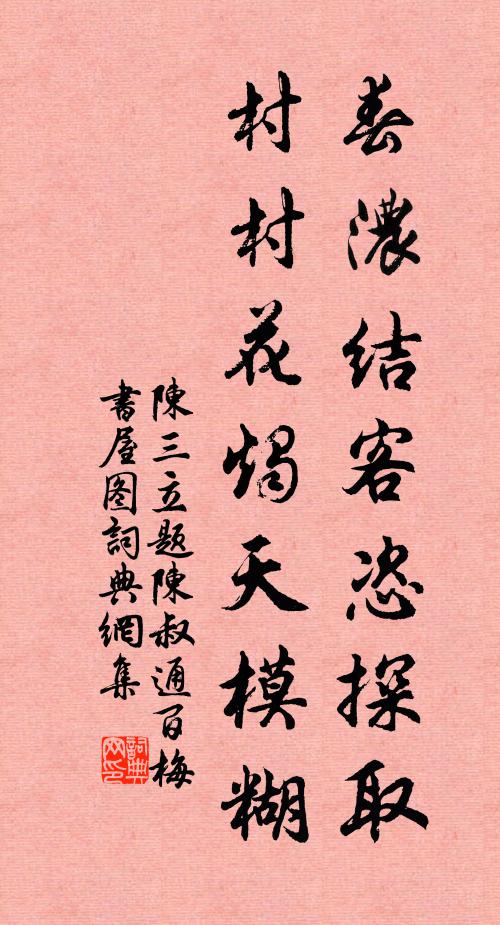 春濃結客恣探取
村村花燭天模糊
陳三立題陳叔通百梅
書屋图詞典網集
詞典网印